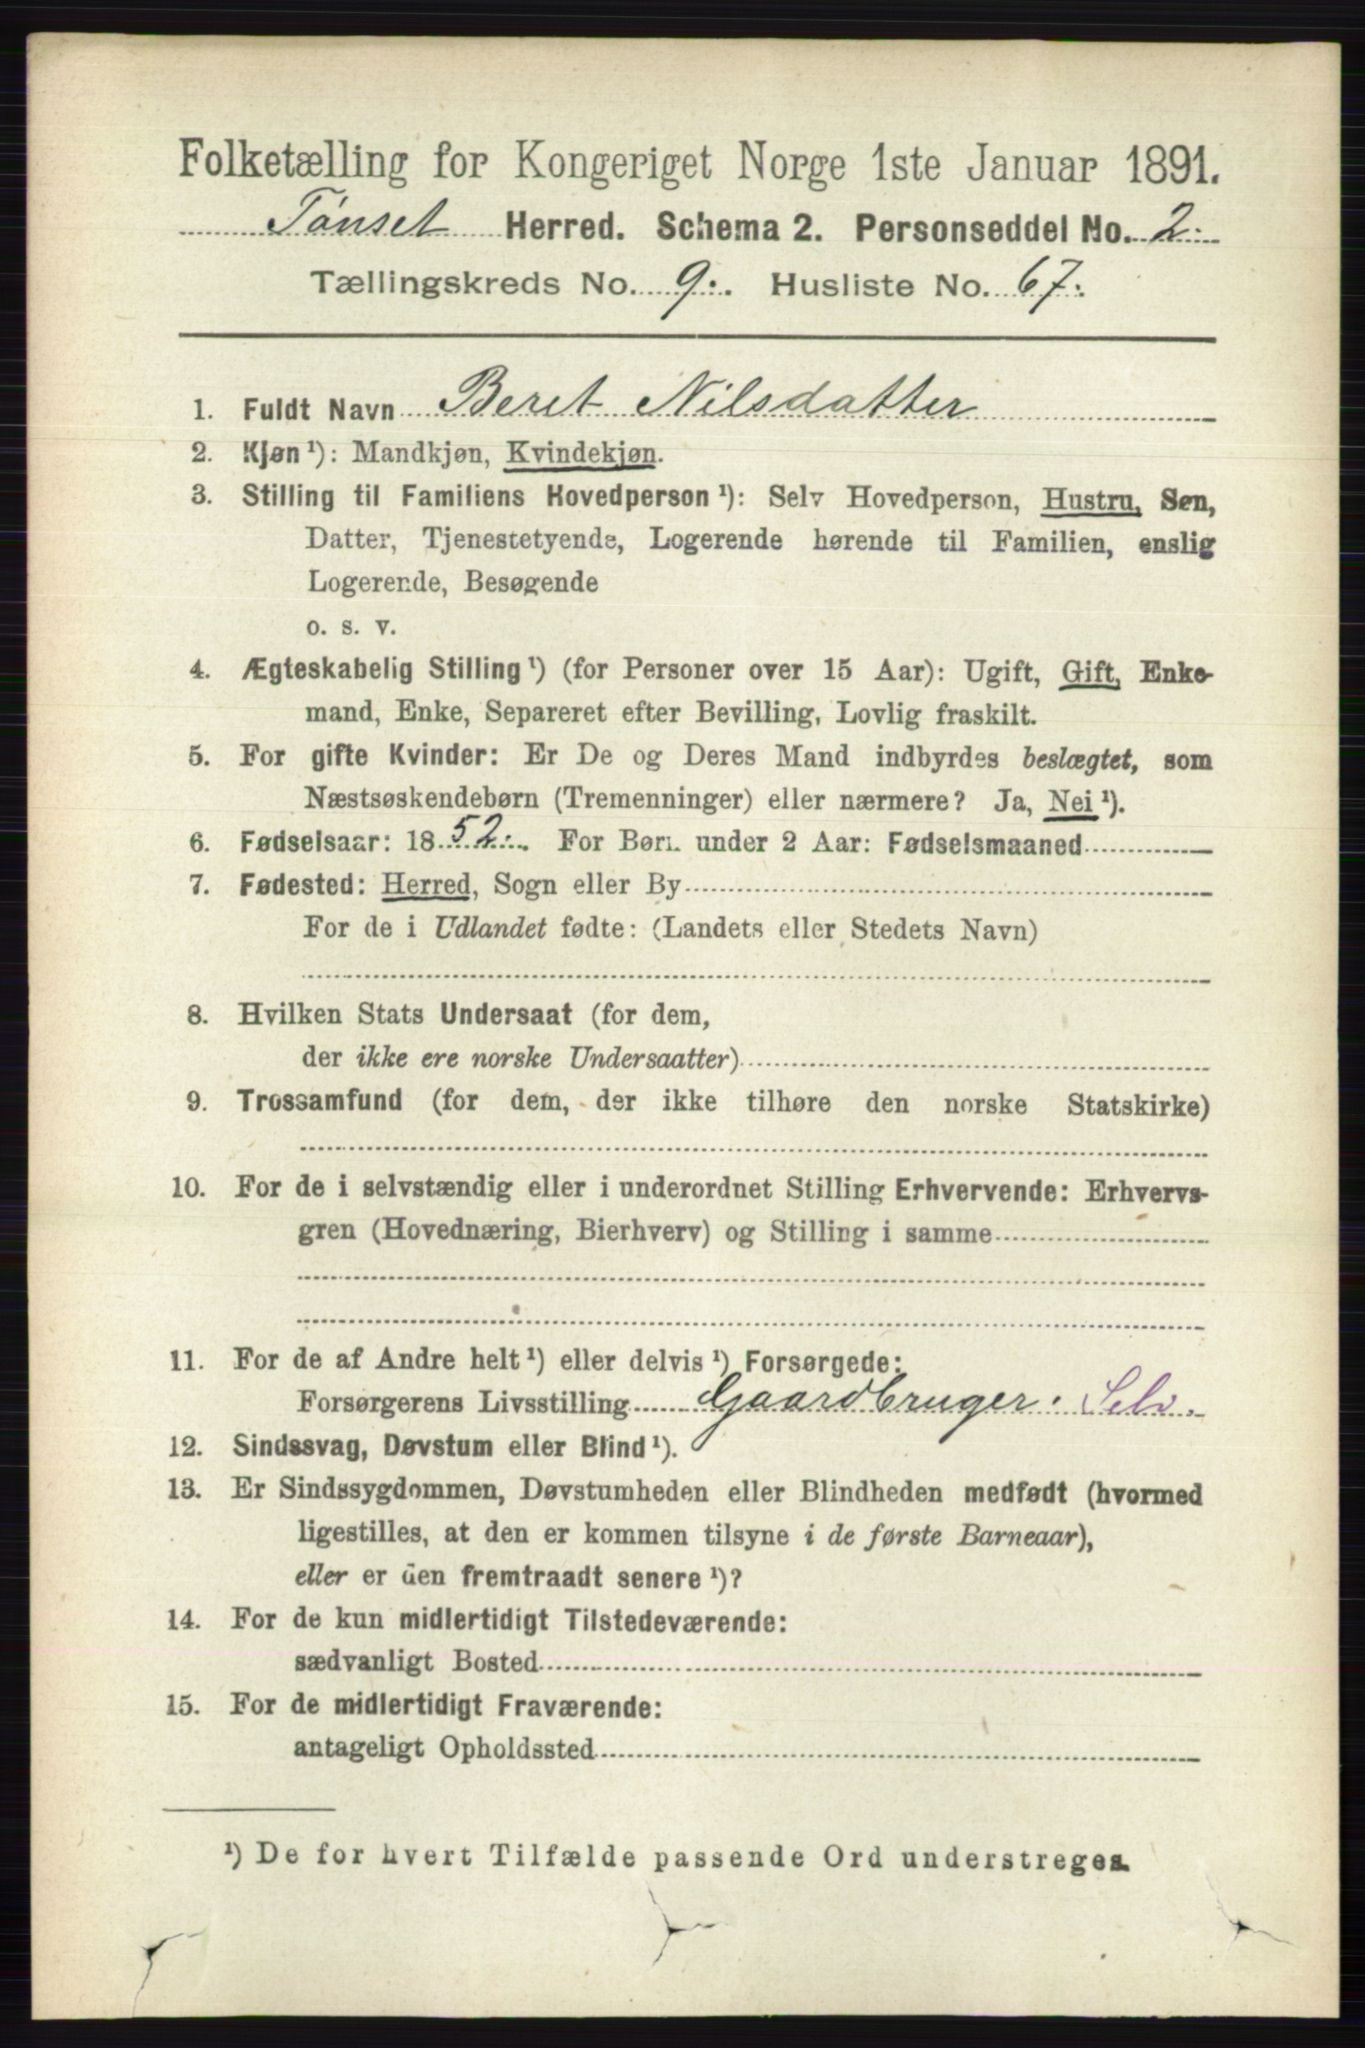 Folketælling for Kongeriget Norge 1ste Januar 1891.
Tønset Herred. Schema 2. Personseddel No. 2.
Tællingskreds No. 9. Husliste No. 67.
1. Fuldt Navn Beret Nilsdatter
2. Kjøn ¹): Mandkjøn, Kvindekjøn.
3. Stilling til Familiens Hovedperson ¹): Selv Hovedperson, Hustru, Søn,
Datter, Tjenestetyende, Logerende hørende til Familien, enslig
Logerende, Besøgende
o. s. v.
4. Ægteskabelig Stilling ¹) (for Personer over 15 Aar): Ugift, Gift, Enke-
mand, Enke, Separeret efter Bevilling, Lovlig fraskilt.
5. For gifte Kvinder: Er De og Deres Mand indbyrdes beslægtet, som
Næstsøskendebørn (Tremenninger) eller nærmere? Ja, Nei ¹).
6. Fødselsaar: 1852. For Børn under 2 Aar: Fødselsmaaned
7. Fødested: Herred, Sogn eller By
For de i Udlandet fødte: (Landets eller Stedets Navn)
8. Hvilken Stats Undersaat (for dem,
der ikke ere norske Undersaatter)
9. Trossamfund (for dem, der ikke tilhøre den norske Statskirke)
10. For de i selvstændig eller i underordnet Stilling Erhvervende: Erhvervs-
gren (Hovednæring, Bierhverv) og Stilling i samme
11. For de af Andre helt ¹) eller delvis ¹) Forsørgede:
Forsørgerens Livsstilling Gaardbruger. Selv.
12. Sindssvag, Døvstum eller Blind ¹).
13. Er Sindssygdommen, Døvstumheden eller Blindheden medfødt (hvormed
ligestilles, at den er kommen tilsyne i de første Barneaar),
eller er den fremtraadt senere ¹)?
14. For de kun midlertidigt Tilstedeværende:
sædvanligt Bosted
15. For de midlertidigt Fraværende:
antageligt Opholdssted
¹) De for hvert Tilfælde passende Ord understreges.